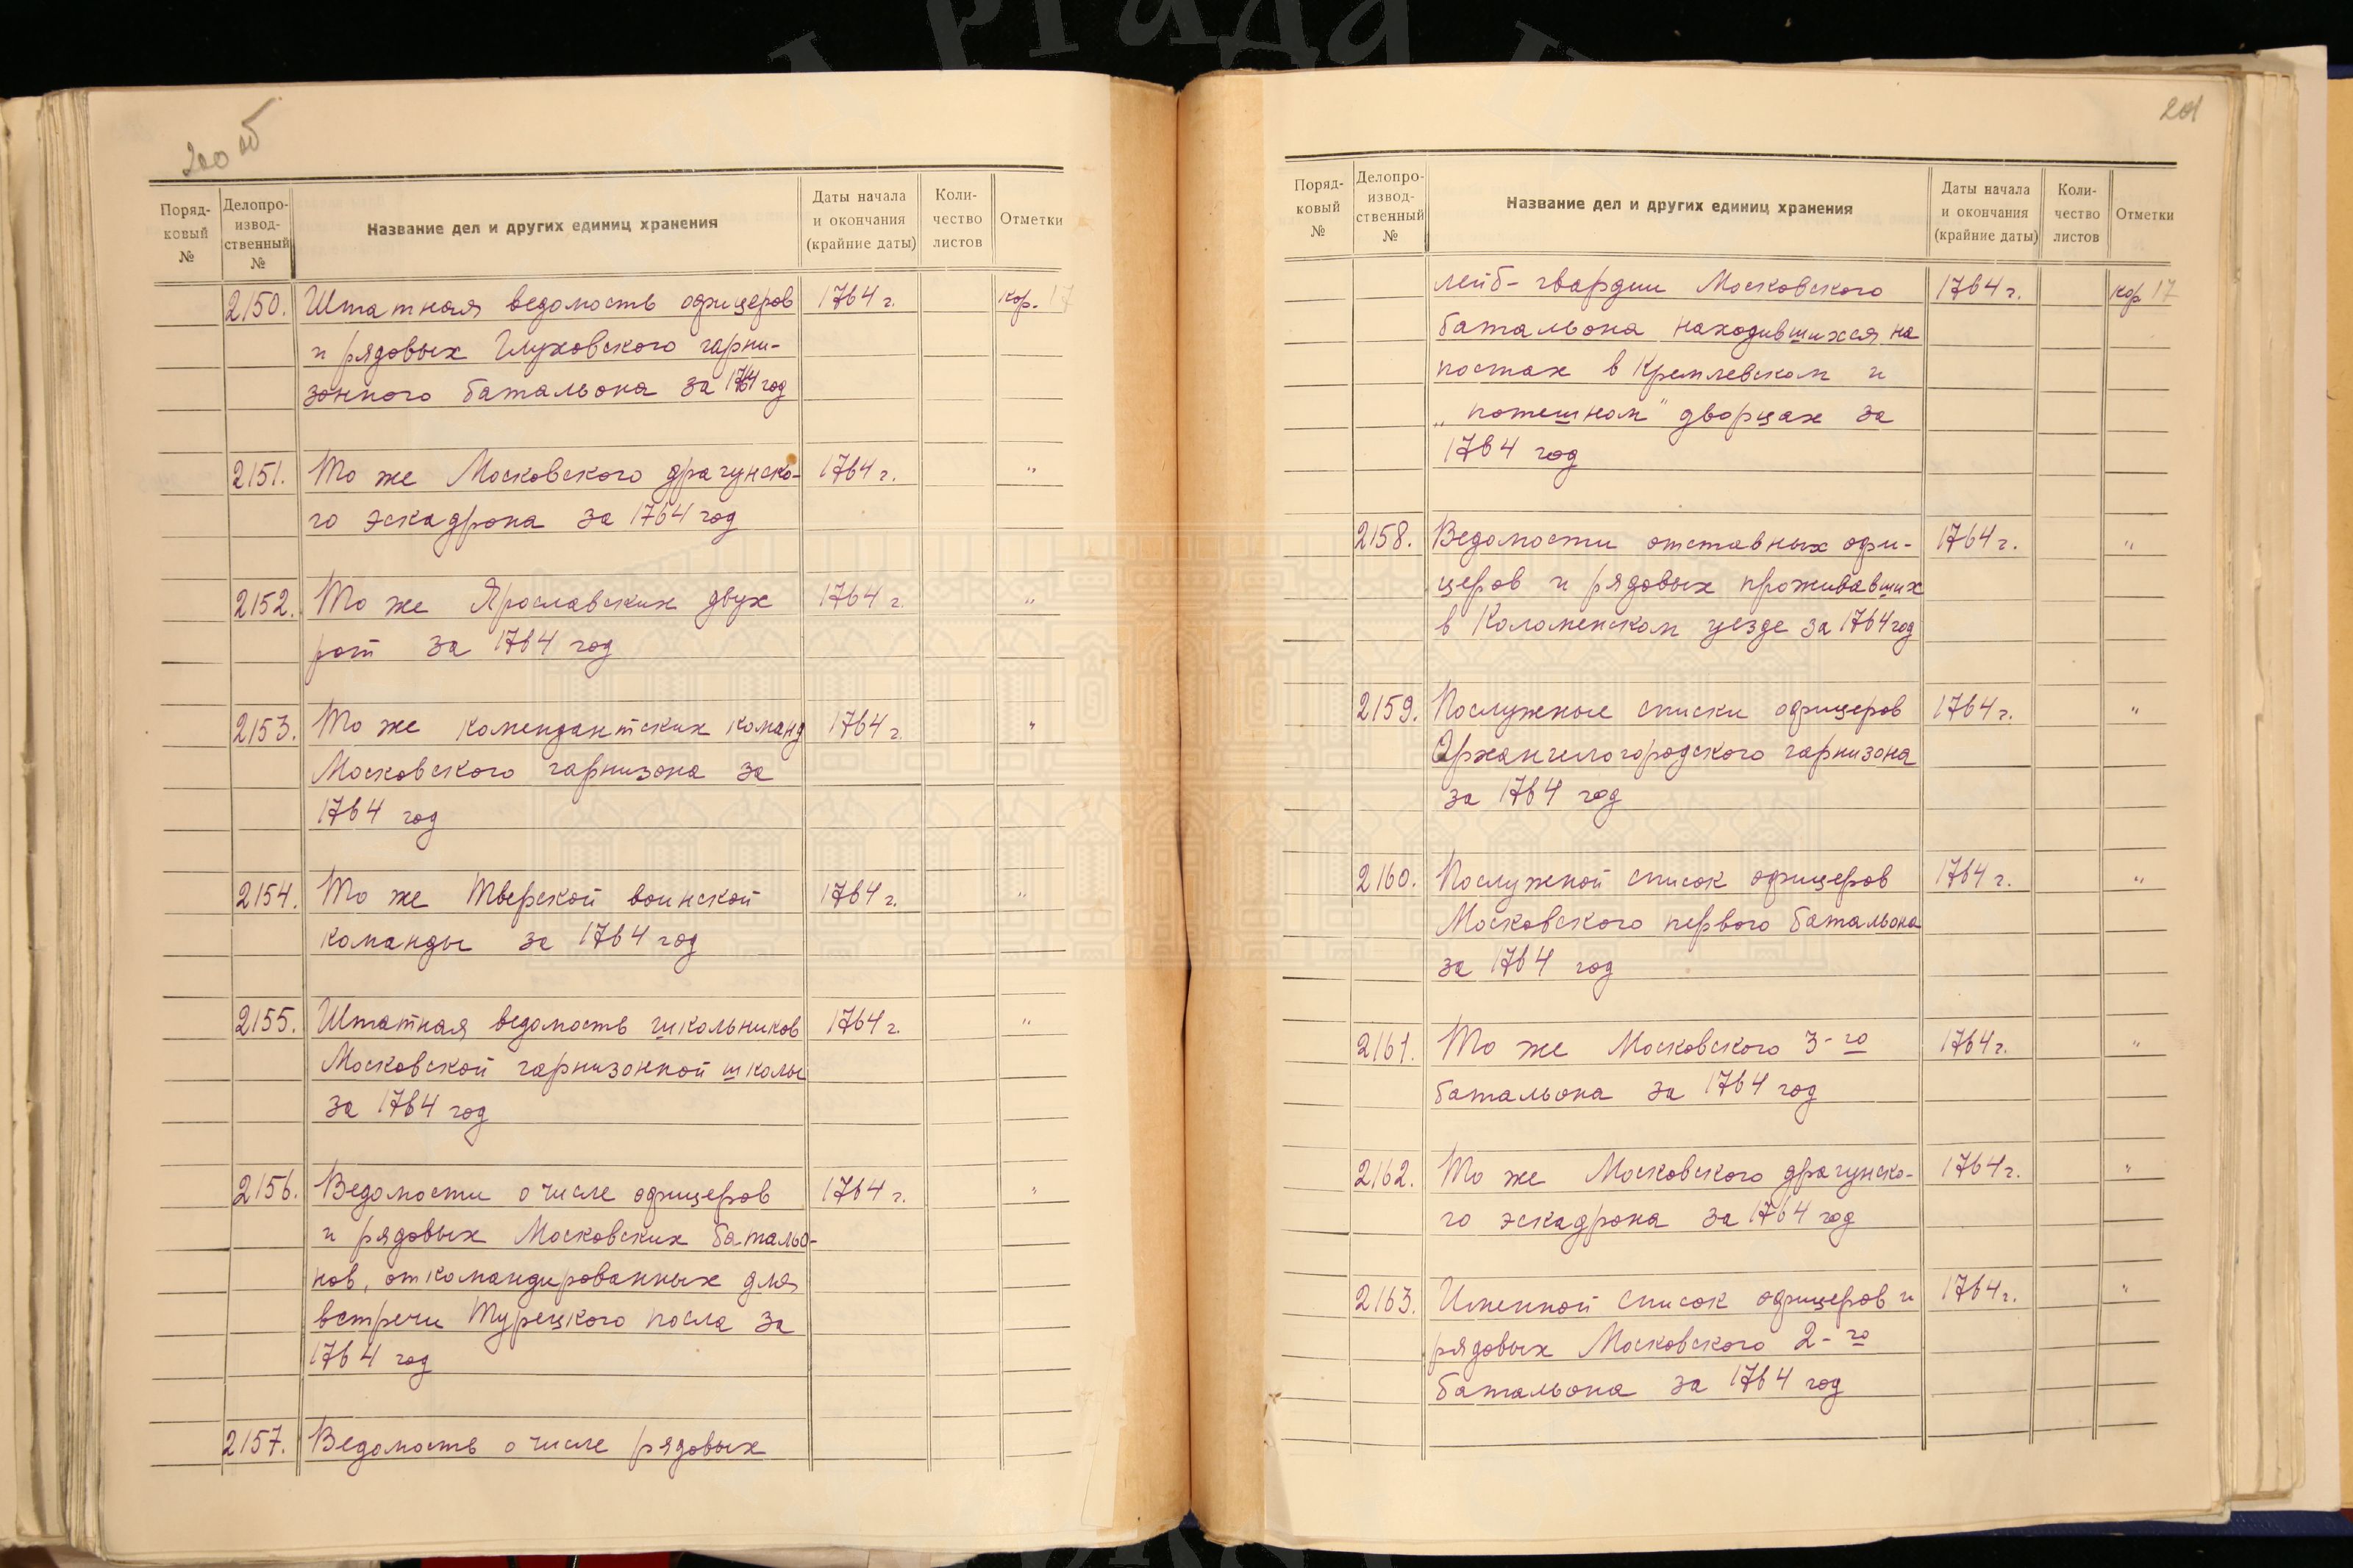 200 об
Поряд-
ковый
№
Делопро-
извод-
ственный
№
Название дел и других единиц хранения
Даты начала
и окончания
(крайние даты)
Коли-
чество
листов
Отметки
2150. Штатная ведомость офицеров 1764 г. кор. 17
и рядовых Глуховского гарни-
зонного батальона за 1764 год
2151. То же Московского драгунско- 1764 г. "
го эскадрона за 1764 год
2152. То же Ярославских двух 1764 г. "
рот за 1764 год
2153. То же комендантских команд 1764 г. "
Московского гарнизона за
1764 год
2154. То же Тверской воинской 1764 г. "
команды за 1764 год
2155. Штатная ведомость школьников 1764 г. "
Московской гарнизонной школы
за 1764 год
2156. Ведомости о числе офицеров 1764 г. "
и рядовых Московских батальо-
нов, откомандированных для
встречи Турецкого посла за
1764 год
2157. Ведомость о числе рядовых
201
Поряд-
ковый
№
Делопро-
извод-
ственный
№
Название дел и других единиц хранения
Даты начала
и окончания
(крайние даты)
Коли-
чество
листов
Отметки
лейб-гвардии Московского 1764 г. кор 17
батальона находившихся на
постах в Кремлевском и
„потешном" дворцах за
1764 год
2158. Ведомости отставных офи- 1764 г. "
церов и рядовых проживавших
в Коломенском уезде за 1764 год
2159. Послужные списки офицеров 1764 г. "
Архангелогородского гарнизона
за 1764 год
2160. Послужной список офицеров 1764 г. "
Московского первого батальона
за 1764 год
2161. То же Московского 3-го 1764 г. "
батальона за 1764 год
2162. То же Московского драгунско- 1764 г. "
го эскадрона за 1764 год
2163. Именной список офицеров и 1764 г. "
рядовых Московского 2-го
батальона за 1764 год